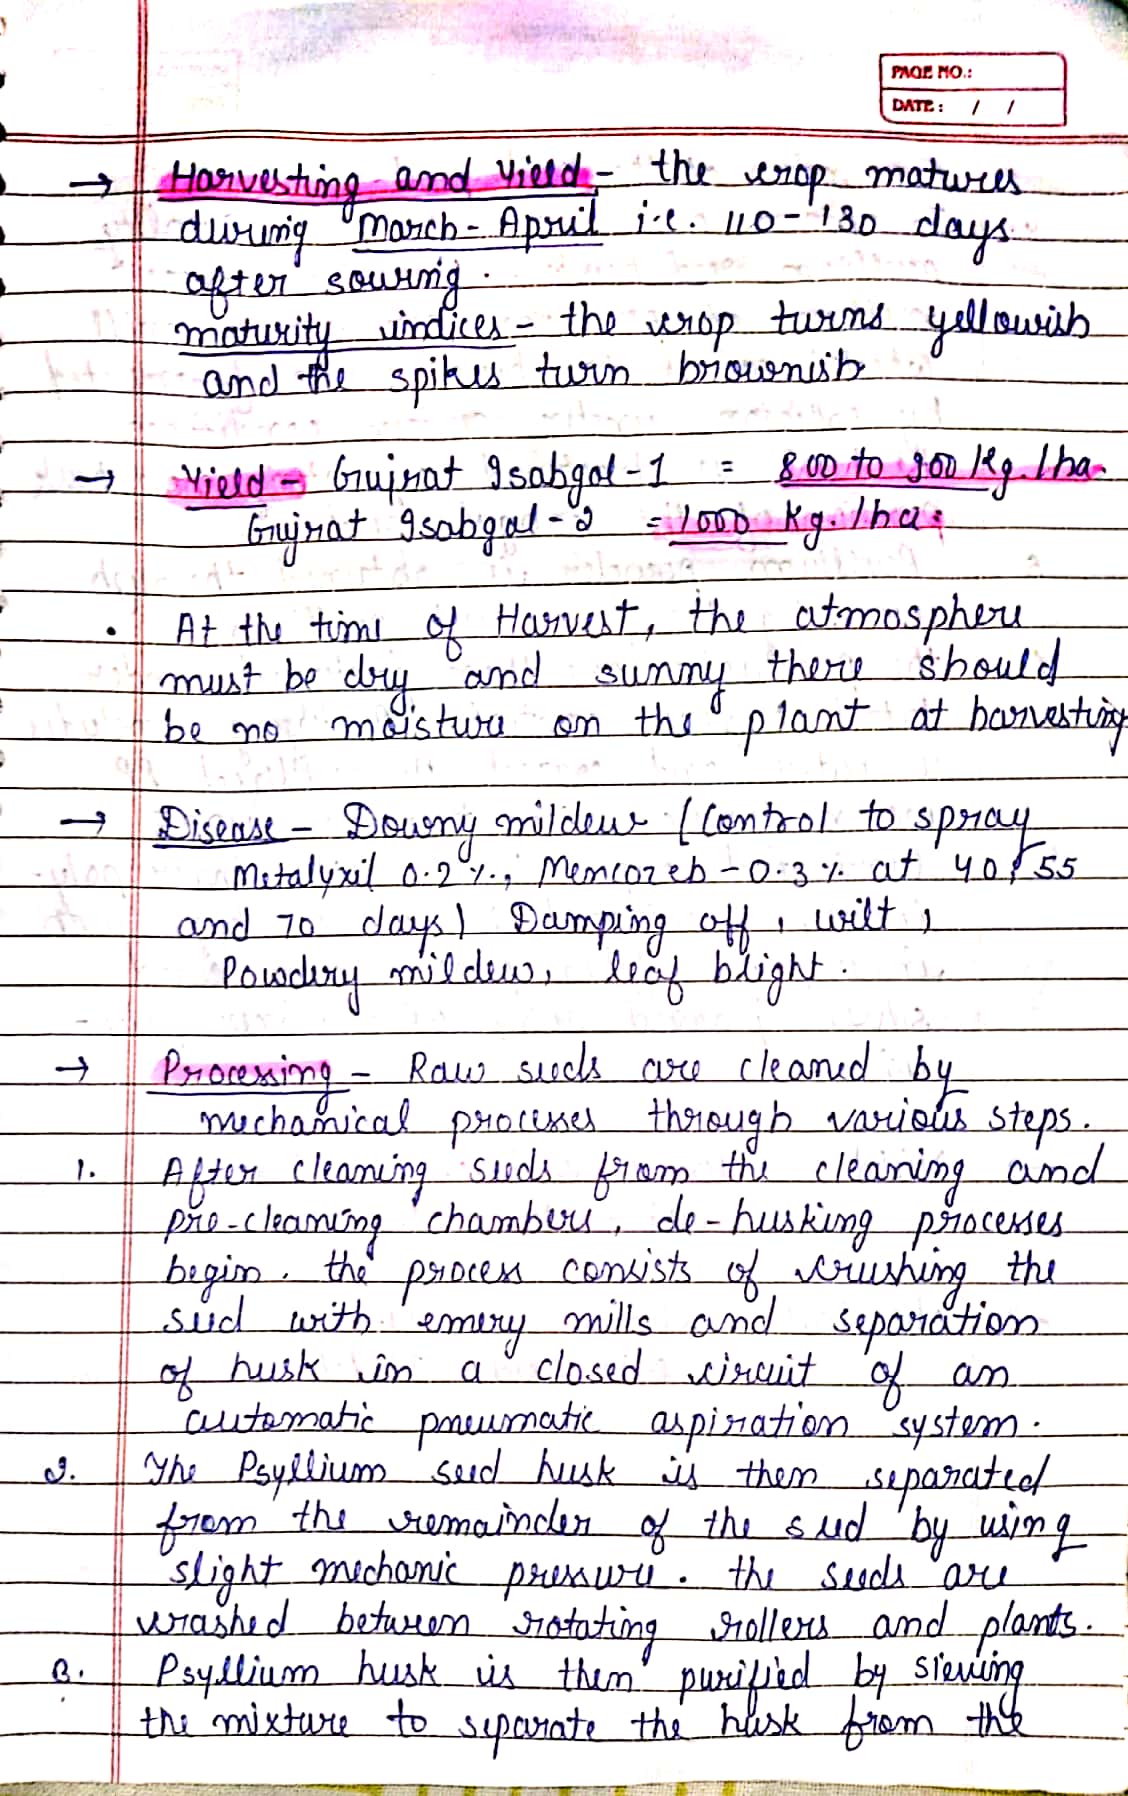 PAGE NO.:
DATE: / /
→ Harvesting and Yield - the crop matures
during March - April i.e. 110 - 130 days
after souring.
maturity indices - the crop turns yellowish
and the spikes turn brownish
→ Yield - Gujrat Isabgol - 1 = 800 to 900 kg./ha.
Gujrat Isabgal - 2 = 1000 kg./ha.
• At the time of Harvest, the atmosphere
must be dry and sunny there should
be no moisture on the plant at harvesting
→ Disease - Downy mildew (Control to spray
Metalyxil 0.2%, Mencozeb - 0.3% at 40, 55
and 70 days) Damping off, wilt,
Powdery mildew, leaf blight.
→ Processing - Raw seeds are cleaned by
mechanical processes through various steps.
1. After cleaning seeds from the cleaning and
pre-cleaning chambers, de-husking processes
begin. the process consists of crushing the
seed with emery mills and separation
of husk in a closed circuit of an
automatic pneumatic aspiration system.
2. The Psyllium seed husk is then separated
from the remainder of the seed by using
slight mechanic pressure. the seeds are
crashed between rotating rollers and plants.
3. Psyllium husk is then purified by sieving
the mixture to separate the husk from the